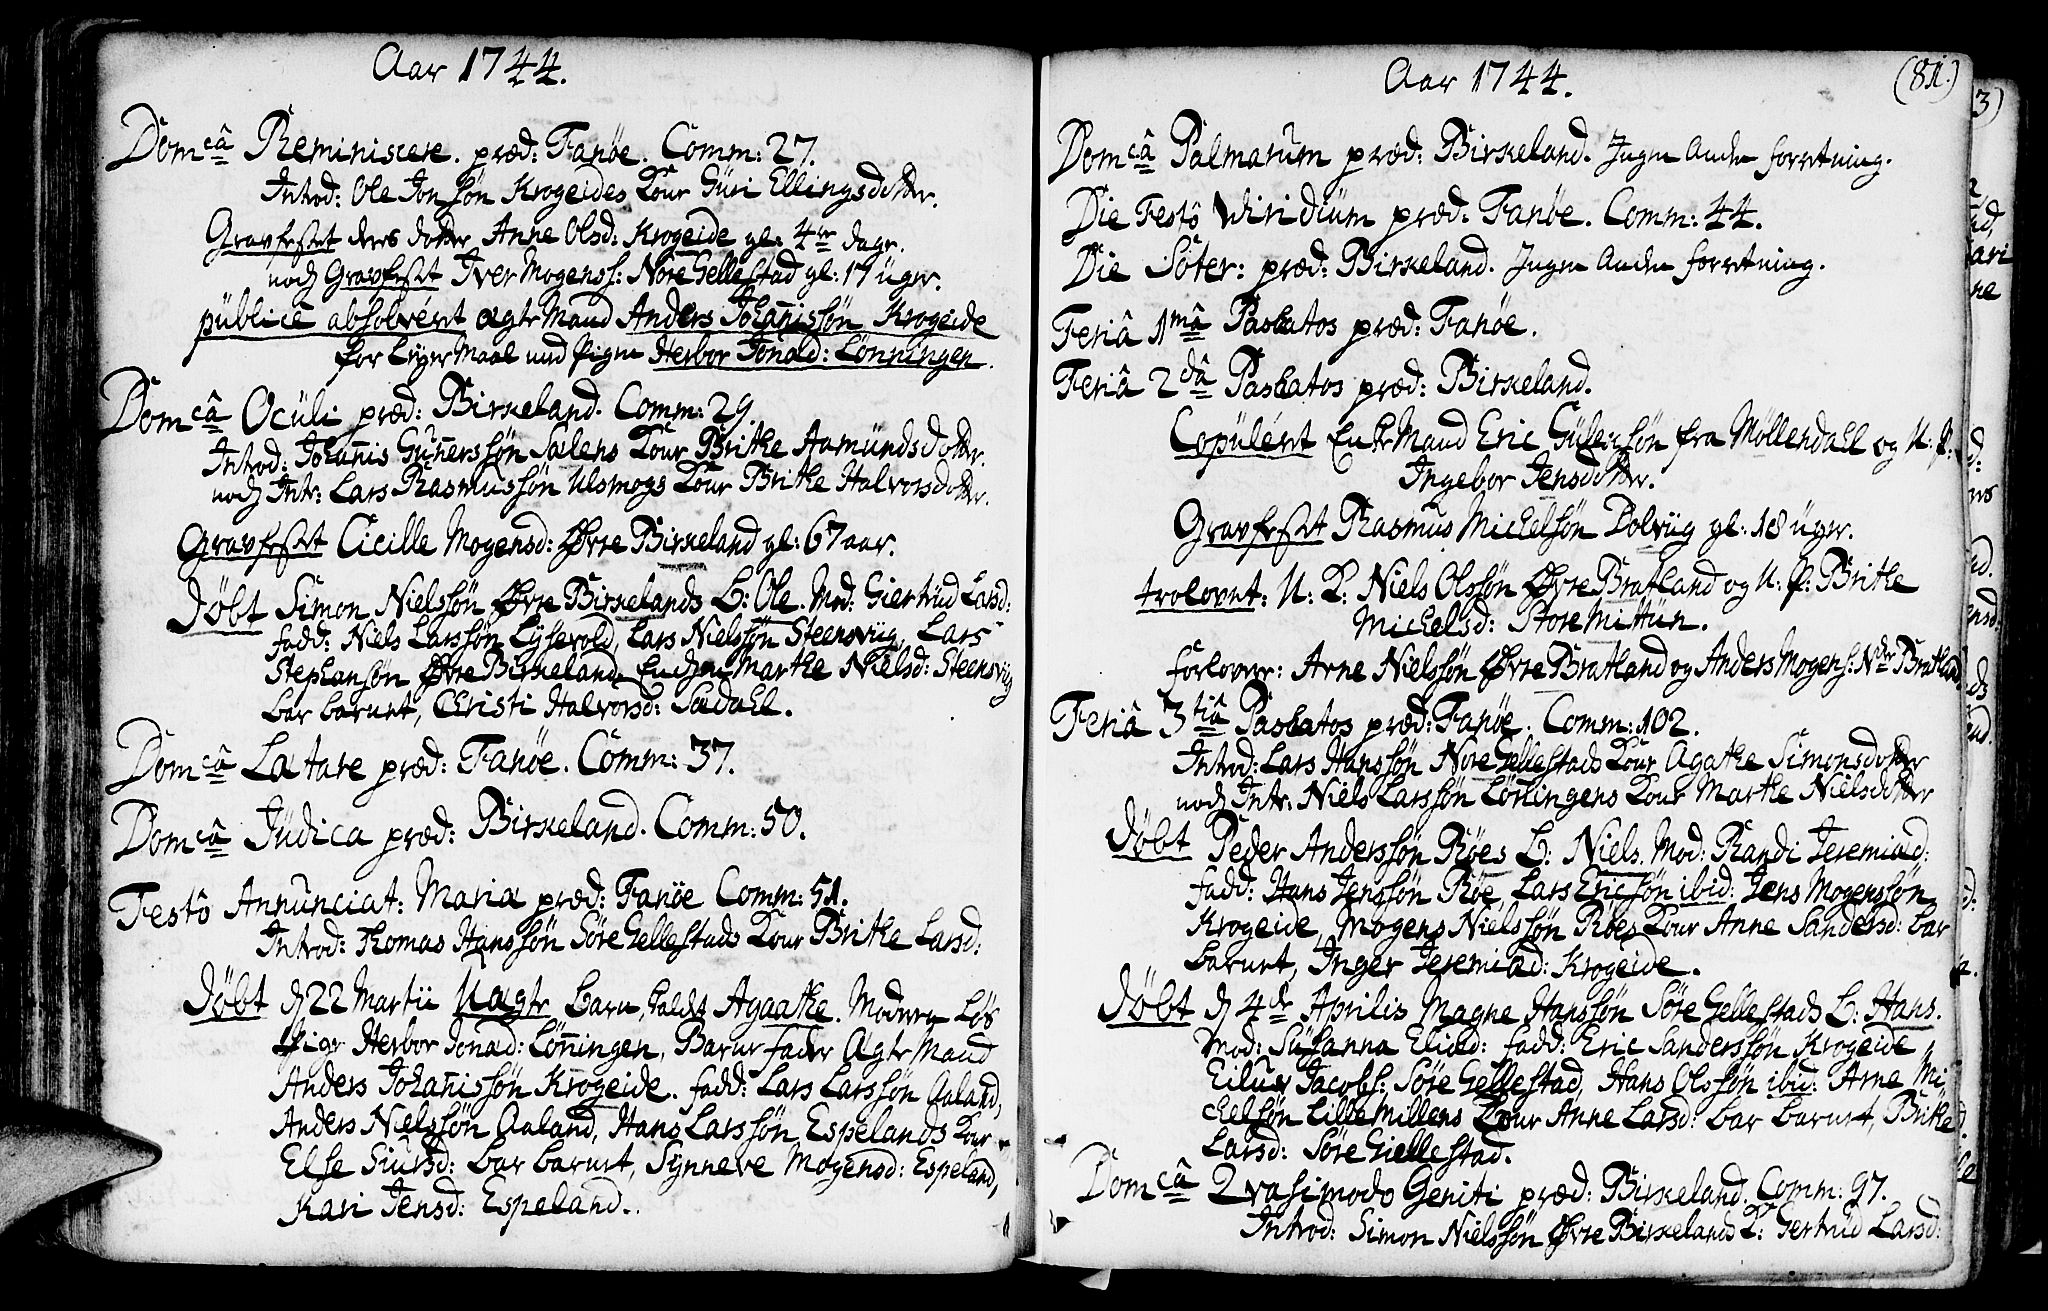 Aar 1744.
Domcâ Reminiscere. præd: Fanöe. Comm: 27.
Introd: Ole Jonssön Krogeides Kour Güri Ellingsdotter.
Gravfestet deres dotter Anne Olsd: Krogeide gl: 4re dage.
nock Gravfestet Iver Mogenss: Nore Gellestad gl: 17 üger.
püblice absolvéret ægte Mand Anders Johannissön Krogeide
for Leyermaal med Pigen Herbor Jonæd: Lönningen.
Domcâ Ocüli præd: Birkeland. Comm: 29.
Introd: Johannis Gunnerssön Sælens Kour Brithe Aamündsdotter.
nock Intr: Lars Rasmussön Ulsmogs Kour Brithe Halvorsdotter.
Gravfestet Cicille Mogensd: Øvre Birkeland gl: 67 aar.
Döbt Simon Nielssön Øvre Birkelands B: Ole. Mod: Giertrüd Larsd:
fadd: Niels Larssön Lÿsevold, Lars Nielssön Steensviig, Lars
Stephanssön Øvre Birkeland, Encken Marthe Nielsd: Steensviig
bar barnet, Christi Halvorsd: Sædahl.
Domcâ Lætare præd: Fanöe. Comm: 37.
Domcâ Jüdica præd: Birkeland. Comm: 50.
Festô Annünciat: Mariæ præd: Fanöe Comm: 51.
Introd: Thomas Hanssön Söre Gellestads Kour Brithe Larsd:
Döbt d 22 Martii Uægte barn, kaldt Agaathe. Moderen Lös
Pige Herbor Jonæd: Lönningen, Barne fader Ægte Mand
Anders Johannissön Krogeide. fadd: Lars Larssön Aaland,
Anders Nielssön Aaland, Hans Larssön Espelands Kour
Else Siürsd: bar barnet, Sÿnneve Mogensd: Espeland,
Kari Jensd: Espeland.
Aar 1744.
(81.)
Domcâ Palmarum præd: Birkeland. Ingen Anden forretning.
Die Festô Viridium præd: Fanöe. Comm: 44.
Die Soter: præd: Birkeland. Ingen Anden forretning.
Feriâ 1mâ Paschatos præd: Fanöe.
Feriâ 2dâ Paschatos præd: Birkeland.
Copüléret Enke Mand Eric fra Möllendahl og U: P:
Ingebor Jensdotter.
Gravfestet Rasmus Michelsön Dolviig gl: 18 üger.
trolovet: U: K: Niels Olssön Øvre Bratland og U: P: Brithe
Michelsd: Store Mittün.
forlovere: Arne Nielssön Øvre Bratland og Anders Mogens: Ndre Bratland.
Feriâ 3tiâ Paschatos præd: Fanöe. Comm: 102.
Introd: Lars Hanssön Nore Gellestads Kour Agathe Simonsdotter
nock Intr: Niels Larssön Lönningens Kour Marthe Nielsdotter
Döbt Peder Anderssön Röes B: Niels. Mod: Randi Jeremiæd:
fadd: Hans Jenssön Röe, Lars Ericssön ibid: Jens Mogenssön
Krogeide, Mogens Nielssön Röes Kour Anne Sandersd: bar
barnet, Inger Jeremiæd: Krogeide.
Döbt d 4de Aprilis Magne Hanssön Söre Gellestads B: Hans.
Mod: Süsanna Eliæd: fadd: Eric Sanderssön Krogeide
Jacobs: Söre Gellestad, Hans Olssön ibid: Arne Mi
chelsön Lille Millens Kour Anne Larsd: bar barnet, Brithe
Larsd: Söre Giellestad.
Domcâ Qvasimodo Geniti præd: Birkeland. Comm: 97.
Introd: Simon Nielssön Øvre Birkelands K: Gertrüd Larsd: